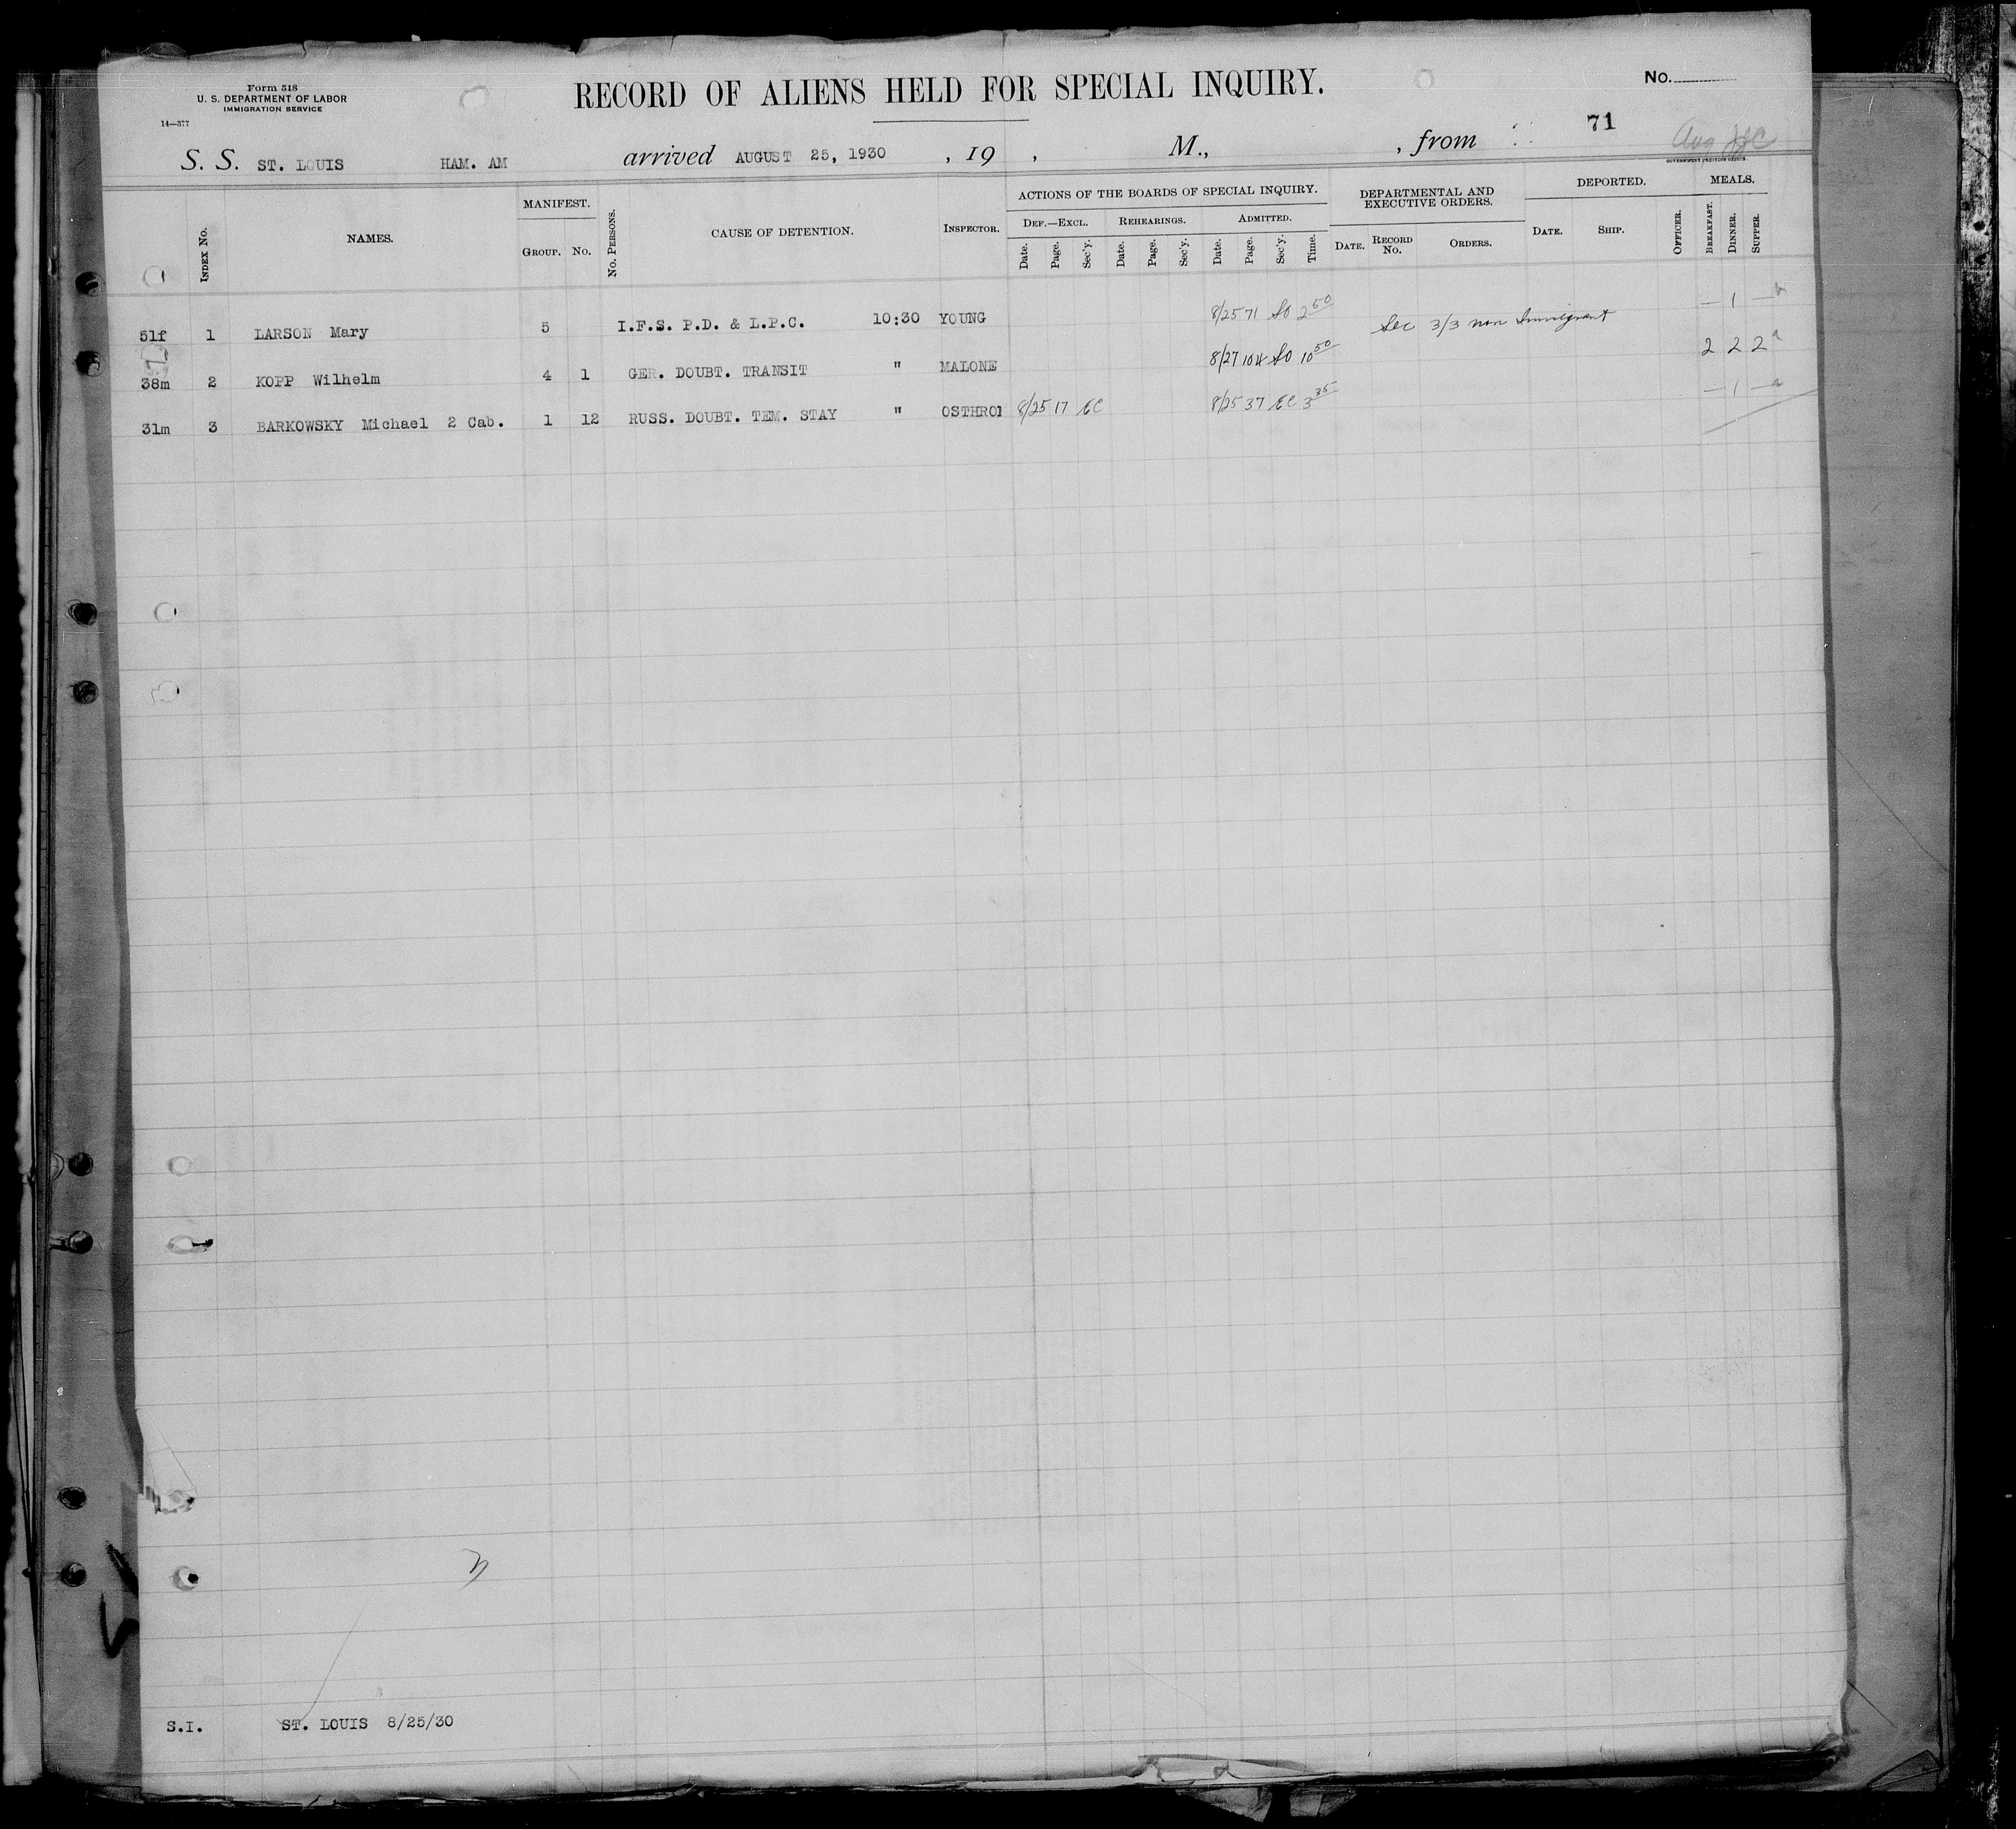 Form 518
U. S. DEPARTMENT OF LABOR
IMMIGRATION SERVICE
14—377
RECORD OF ALIENS HELD FOR SPECIAL INQUIRY.
No.
71
S. S. ST. LOUIS HAM. AM arrived AUGUST 25, 1930 , 19 , M., , from
Aug
GOVERNMENT PRINTING OFFICE
INDEX No. NAMES. MANIFEST. GROUP. No. No. PERSONS. CAUSE OF DETENTION. INSPECTOR.
ACTIONS OF THE BOARDS OF SPECIAL INQUIRY.
DEF.—EXCL. REHEARINGS. ADMITTED.
Date. Page. Sec'y. Date. Page. Sec'y. Date. Page. Sec'y. Time.
DEPARTMENTAL AND EXECUTIVE ORDERS.
DATE. RECORD No. ORDERS.
DEPORTED.
DATE. SHIP. OFFICER.
MEALS.
BREAKFAST. DINNER. SUPPER.
51f 1 LARSON Mary 5 I.F.S. P.D. & L.P.C. 10:30 YOUNG 8/25 71 SO 2 50 Sec 3/3 non Immigrant — 1 —
38m 2 KOPP Wilhelm 4 1 GER. DOUBT. TRANSIT " MALONE 8/27 104 SO 10 50 2 2 2
31m 3 BARKOWSKY Michael 2 Cab. 1 12 RUSS. DOUBT. TEM. STAY " OSTHROI 8/25 17 EC 8/25 37 EC 3 35 — 1 —
S.I. ST. LOUIS 8/25/30